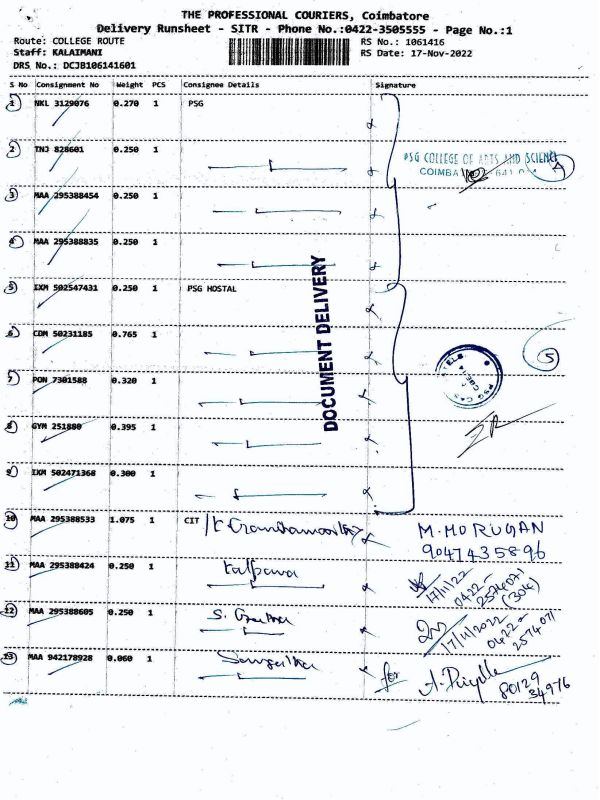 THE PROFESSIONAL COURIERS, Coimbatore
Delivery Runsheet - SITR - Phone No.:0422-3505555 - Page No.:1
Route: COLLEGE ROUTE RS No.: 1061416
Staff: KALAIMANI RS Date: 17-Nov-2022
DRS No.: DCJB106141601
S No Consignment No Weight PCS Consignee Details Signature
1 NKL 3129076 0.270 1 PSG
2 TNJ 828601 0.250 1
PSG COLLEGE OF ARTS AND SCIENCE
3 MAA 295388454 0.250 1
4 MAA 295388835 0.250 1
5 IXM 502547431 0.250 1 PSG HOSTAL
DOCUMENT DELIVERY
6 CDM 50231185 0.765 1
5
7 PON 7301588 0.320 1
8 GYM 251880 0.395 1
9 IXM 502471368 0.300 1
10 MAA 295388533 1.075 1 CIT M. MURUGAN
9047435896
11 MAA 295388424 0.250 1 Kalpana
17/11/22
0422-
2574071
12 MAA 295388605 0.250 1
17/11/2022
0422-
2574071
13 MAA 942178928 0.060 1 for
80129
34976